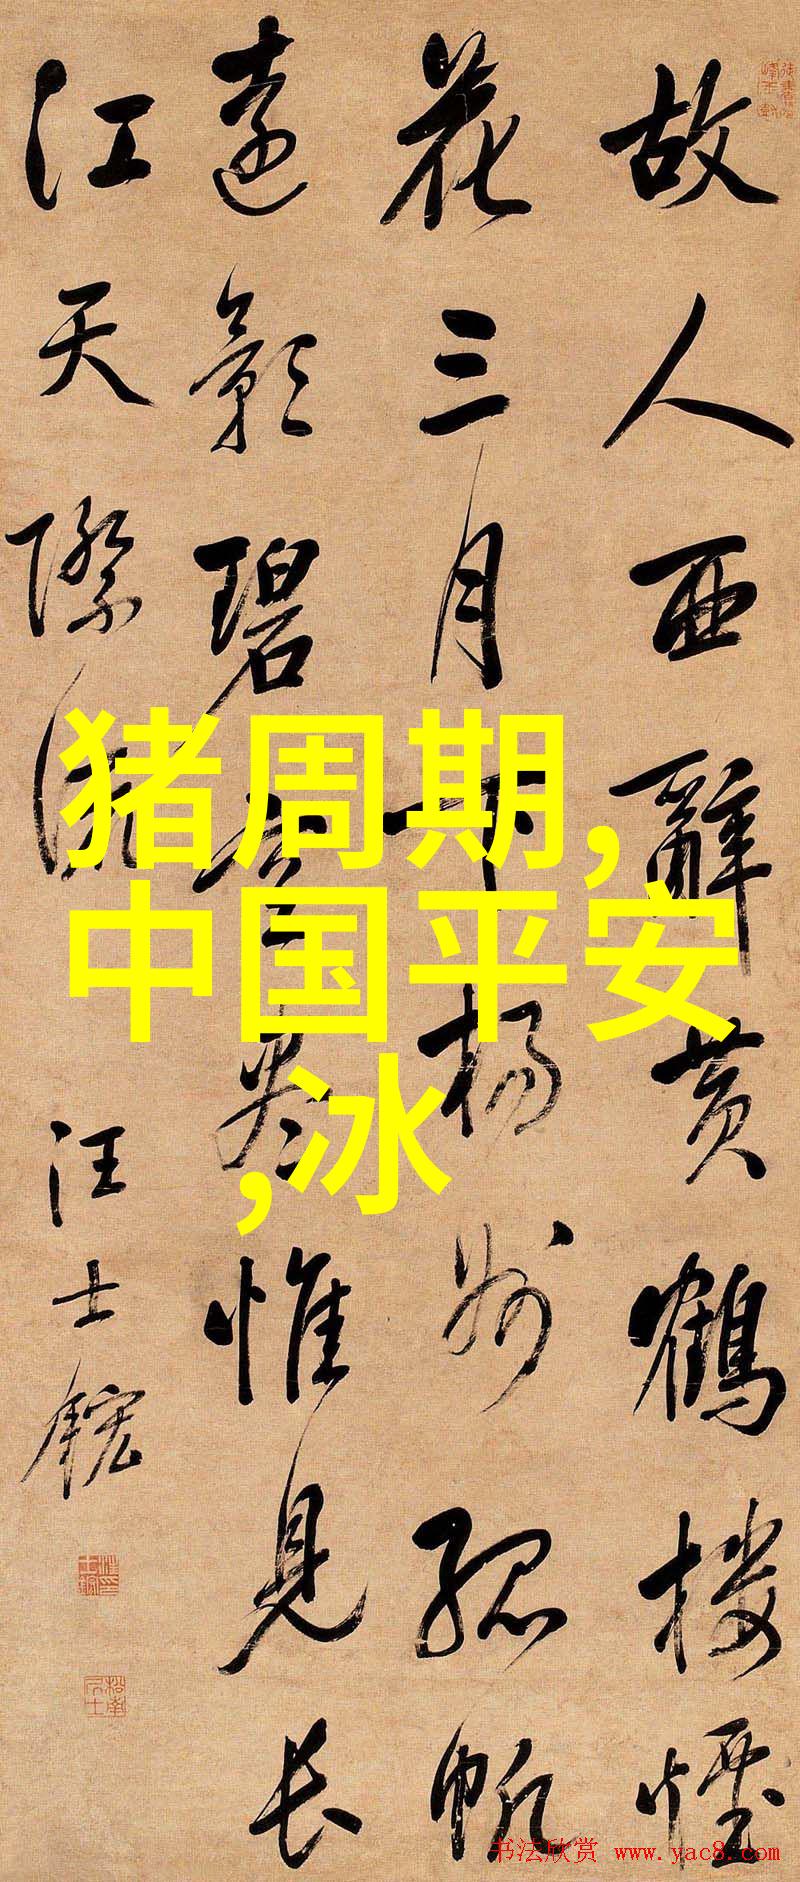 故人西辭黄鶴樓煙
花三月下楊州孤帆
遠影碧空盡惟見长
江天際流
汪士鋐
猪周期,
中国平安
,冰
书法欣赏 www.yac8.com